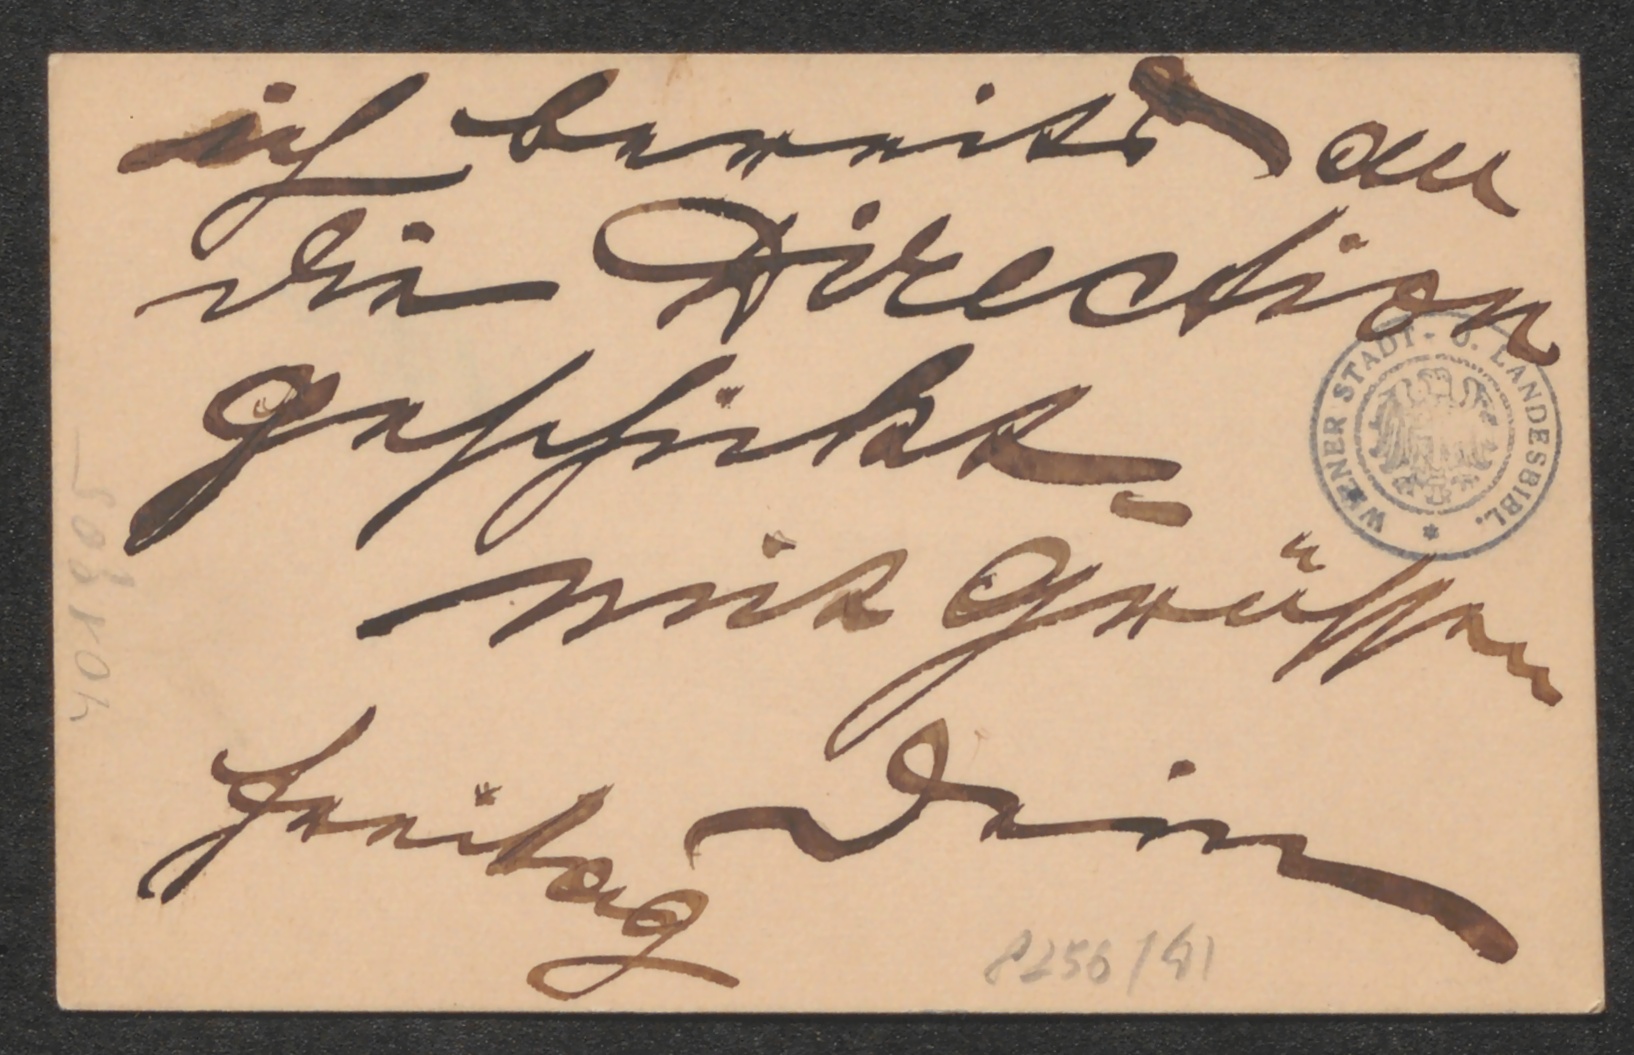 ich bereits an
die Direction
geschickt.
mit Grüssen
Dein
Freitag
WIENER STADT- U. LANDESBIBL.
8256/41